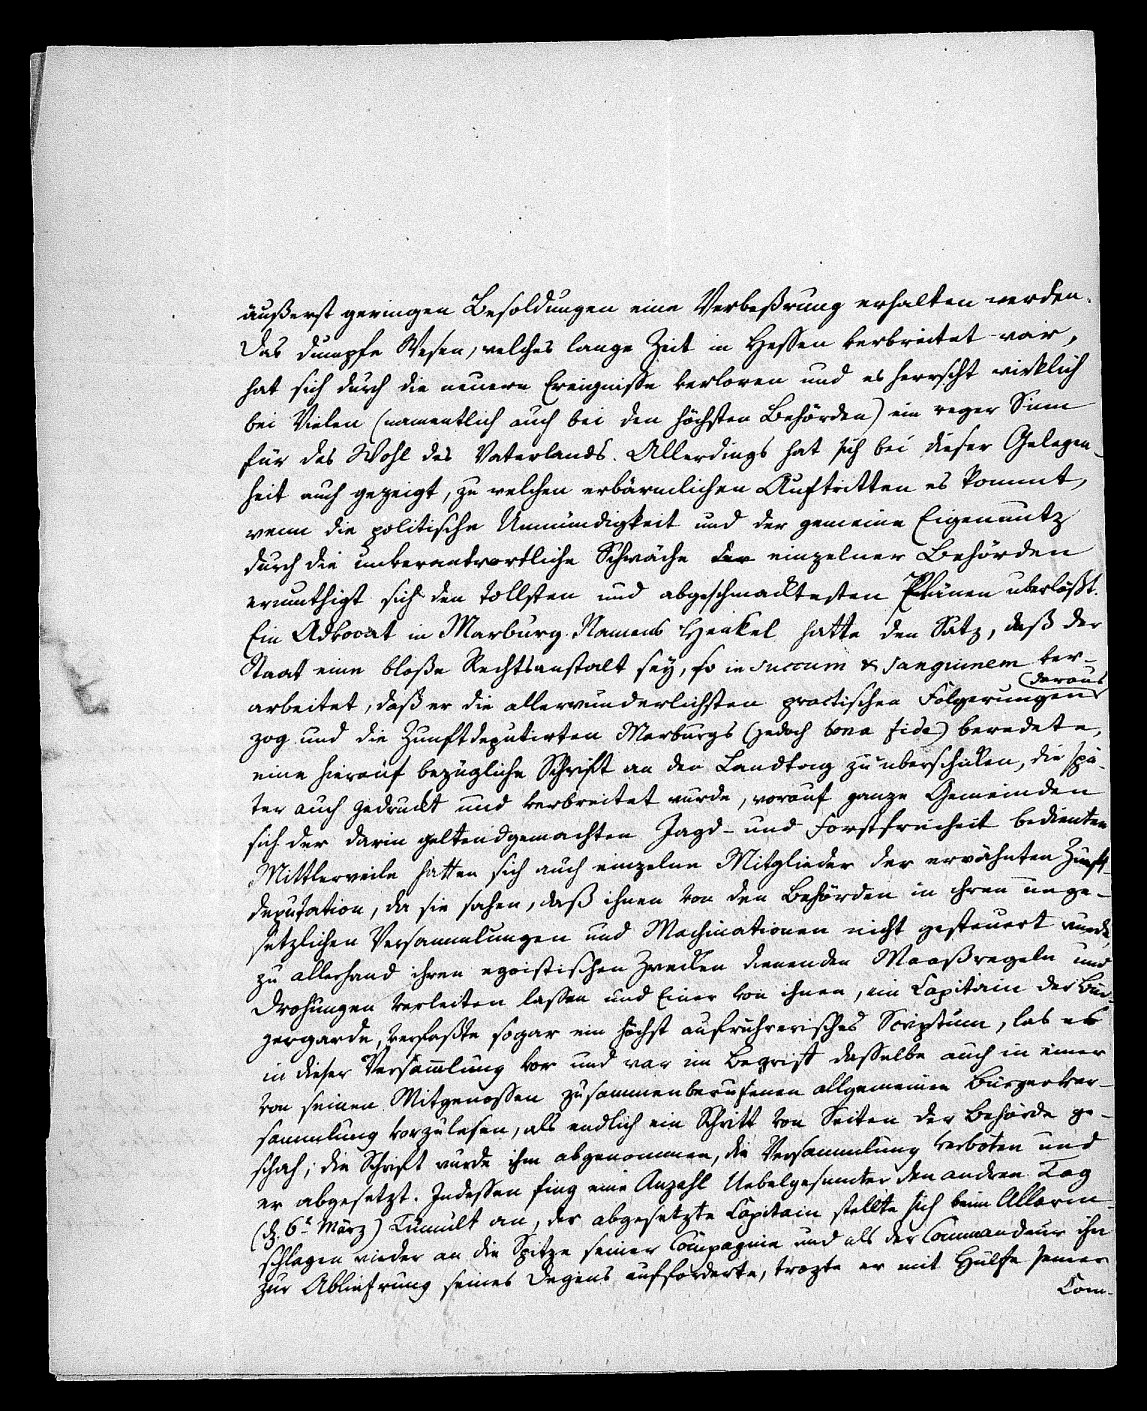 äußerst geringen Besoldungen eine Verbeßrung erhalten werden.
Das dumpfe Wesen, welches lange Zeit in Hessen verbreitet war,
hat sich durch die neuern Ereignisse verloren und es herrscht wirklich
bei Vielen (namentlich auch bei den höchsten Behörden) ein reger Sinn
für das Wohl des Vaterlands. Allerdings hat sich bei dieser Gelegen-
heit auch gezeigt, zu welchen erbärmlichen Auftritten es kommt,
wenn die politische Unmündigkeit und der gemeine Eigennutz
durch die unverantwortliche Schwäche der einzelner Behörden
ermuthigt sich den tollsten und abgeschmacktesten Plänen überläßt.
Ein Advocat in Marburg Namens Henkel hatte den Satz, daß der
Staat eine bloße Rechtsanstalt sey, so in succum & sanguinem ver-
arbeitet, daß er die allerwunderlichsten practischen Folgerungen daraus
zog und die Zunftdeputirten Marburgs (jedoch bona fide) beredete,
eine hierauf bezügliche Schrift an den Landtag zu überschicken, die spä-
ter auch gedruckt und verbreitet wurde, worauf ganze Gemeinden
sich der darin geltendgemachten Jagd- und Forstfreiheit bedienten
Mittlerweile hatten sich auch einzelne Mitglieder der erwähnten Zunft-
deputation, da sie sahen, daß ihnen von den Behörden in ihren unge-
setzlichen Versammlungen und Machinationen nicht gesteuert wurde,
zu allerhand ihren egoistischen Zwecken dienenden Maaßregeln und
Drohungen verleiten lassen und Einer von ihnen, ein Capitain der Bür-
gergarde, verfaßte sogar ein höchst aufrührerisches Scriptum, las es
in dieser Versam̅lung vor und war im Begriff dasselbe auch in einer
von seinen Mitgenossen zusammenberufenen allgemeinen Bürgerver-
sammlung vorzulesen, als endlich ein Schritt von Seiten der Behörde ge-
schah; die Schrift wurde ihm abgenommen, die Versammlung verboten und
er abgesetzt. Indessen fing eine Anzahl Uebelgesinnter den andren Tag
(d. 6t März) Tumult an, der abgesetzte Capitain stellte sich beim Allarm-
schlagen wieder an die Spitze seiner Compagnie und als der Commandeur ihn
zur Ablieferung seines Degens aufforderte, trozte er mit Hülfe seiner
Com-